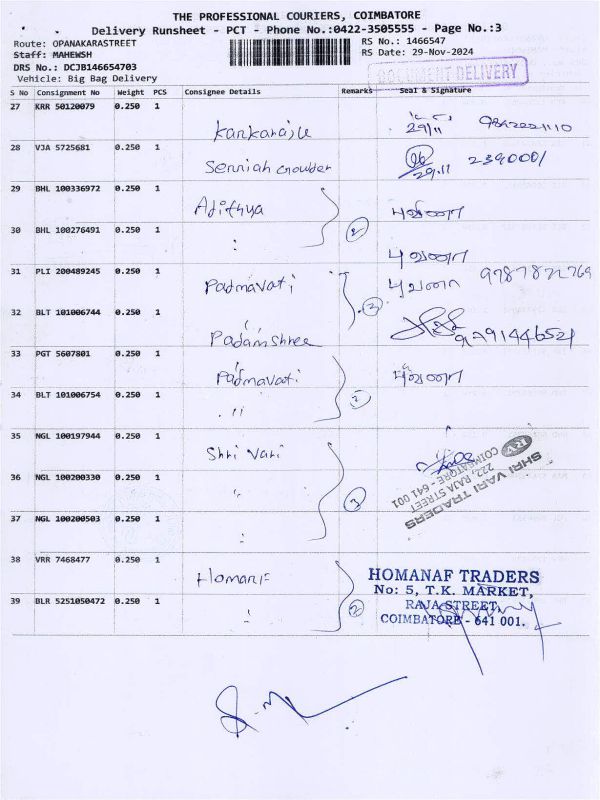 THE PROFESSIONAL COURIERS, COIMBATORE
Delivery Runsheet - PCT - Phone No.:0422-3505555 - Page No.:3
Route: OPANAKARASTREET
RS No.: 1466547
Staff: MAHEWSH
RS Date: 29-Nov-2024
DRS No.: DCJB146654703
Vehicle: Big Bag Delivery
DOCUMENT DELIVERY
S No Consignment No Weight PCS Consignee Details Remarks Seal & Signature
27 KRR 50120079 0.250 1
29/11
28 VJA 5725681 0.250 1
29.11
29 BHL 100336972 0.250 1
Adithya
புவனா
2
30 BHL 100276491 0.250 1
புவனா
31 PLI 200489245 0.250 1
Padmavati
புவனா
32 BLT 101006744 0.250 1
Padamshree
33 PGT 5607801 0.250 1
Padmavati
புவனா
34 BLT 101006754 0.250 1
"
35 NGL 100197944 0.250 1
Shri Vari
SHRI VARI TRADERS
222, RAJA STREET
COIMBATORE - 641 001
36 NGL 100200330 0.250 1
"
3
37 NGL 100200503 0.250 1
38 VRR 7468477 0.250 1
HOMANAF TRADERS
No: 5, T.K. MARKET,
RAJA STREET,
COIMBATORE - 641 001.
39 BLR 5251050472 0.250 1
2